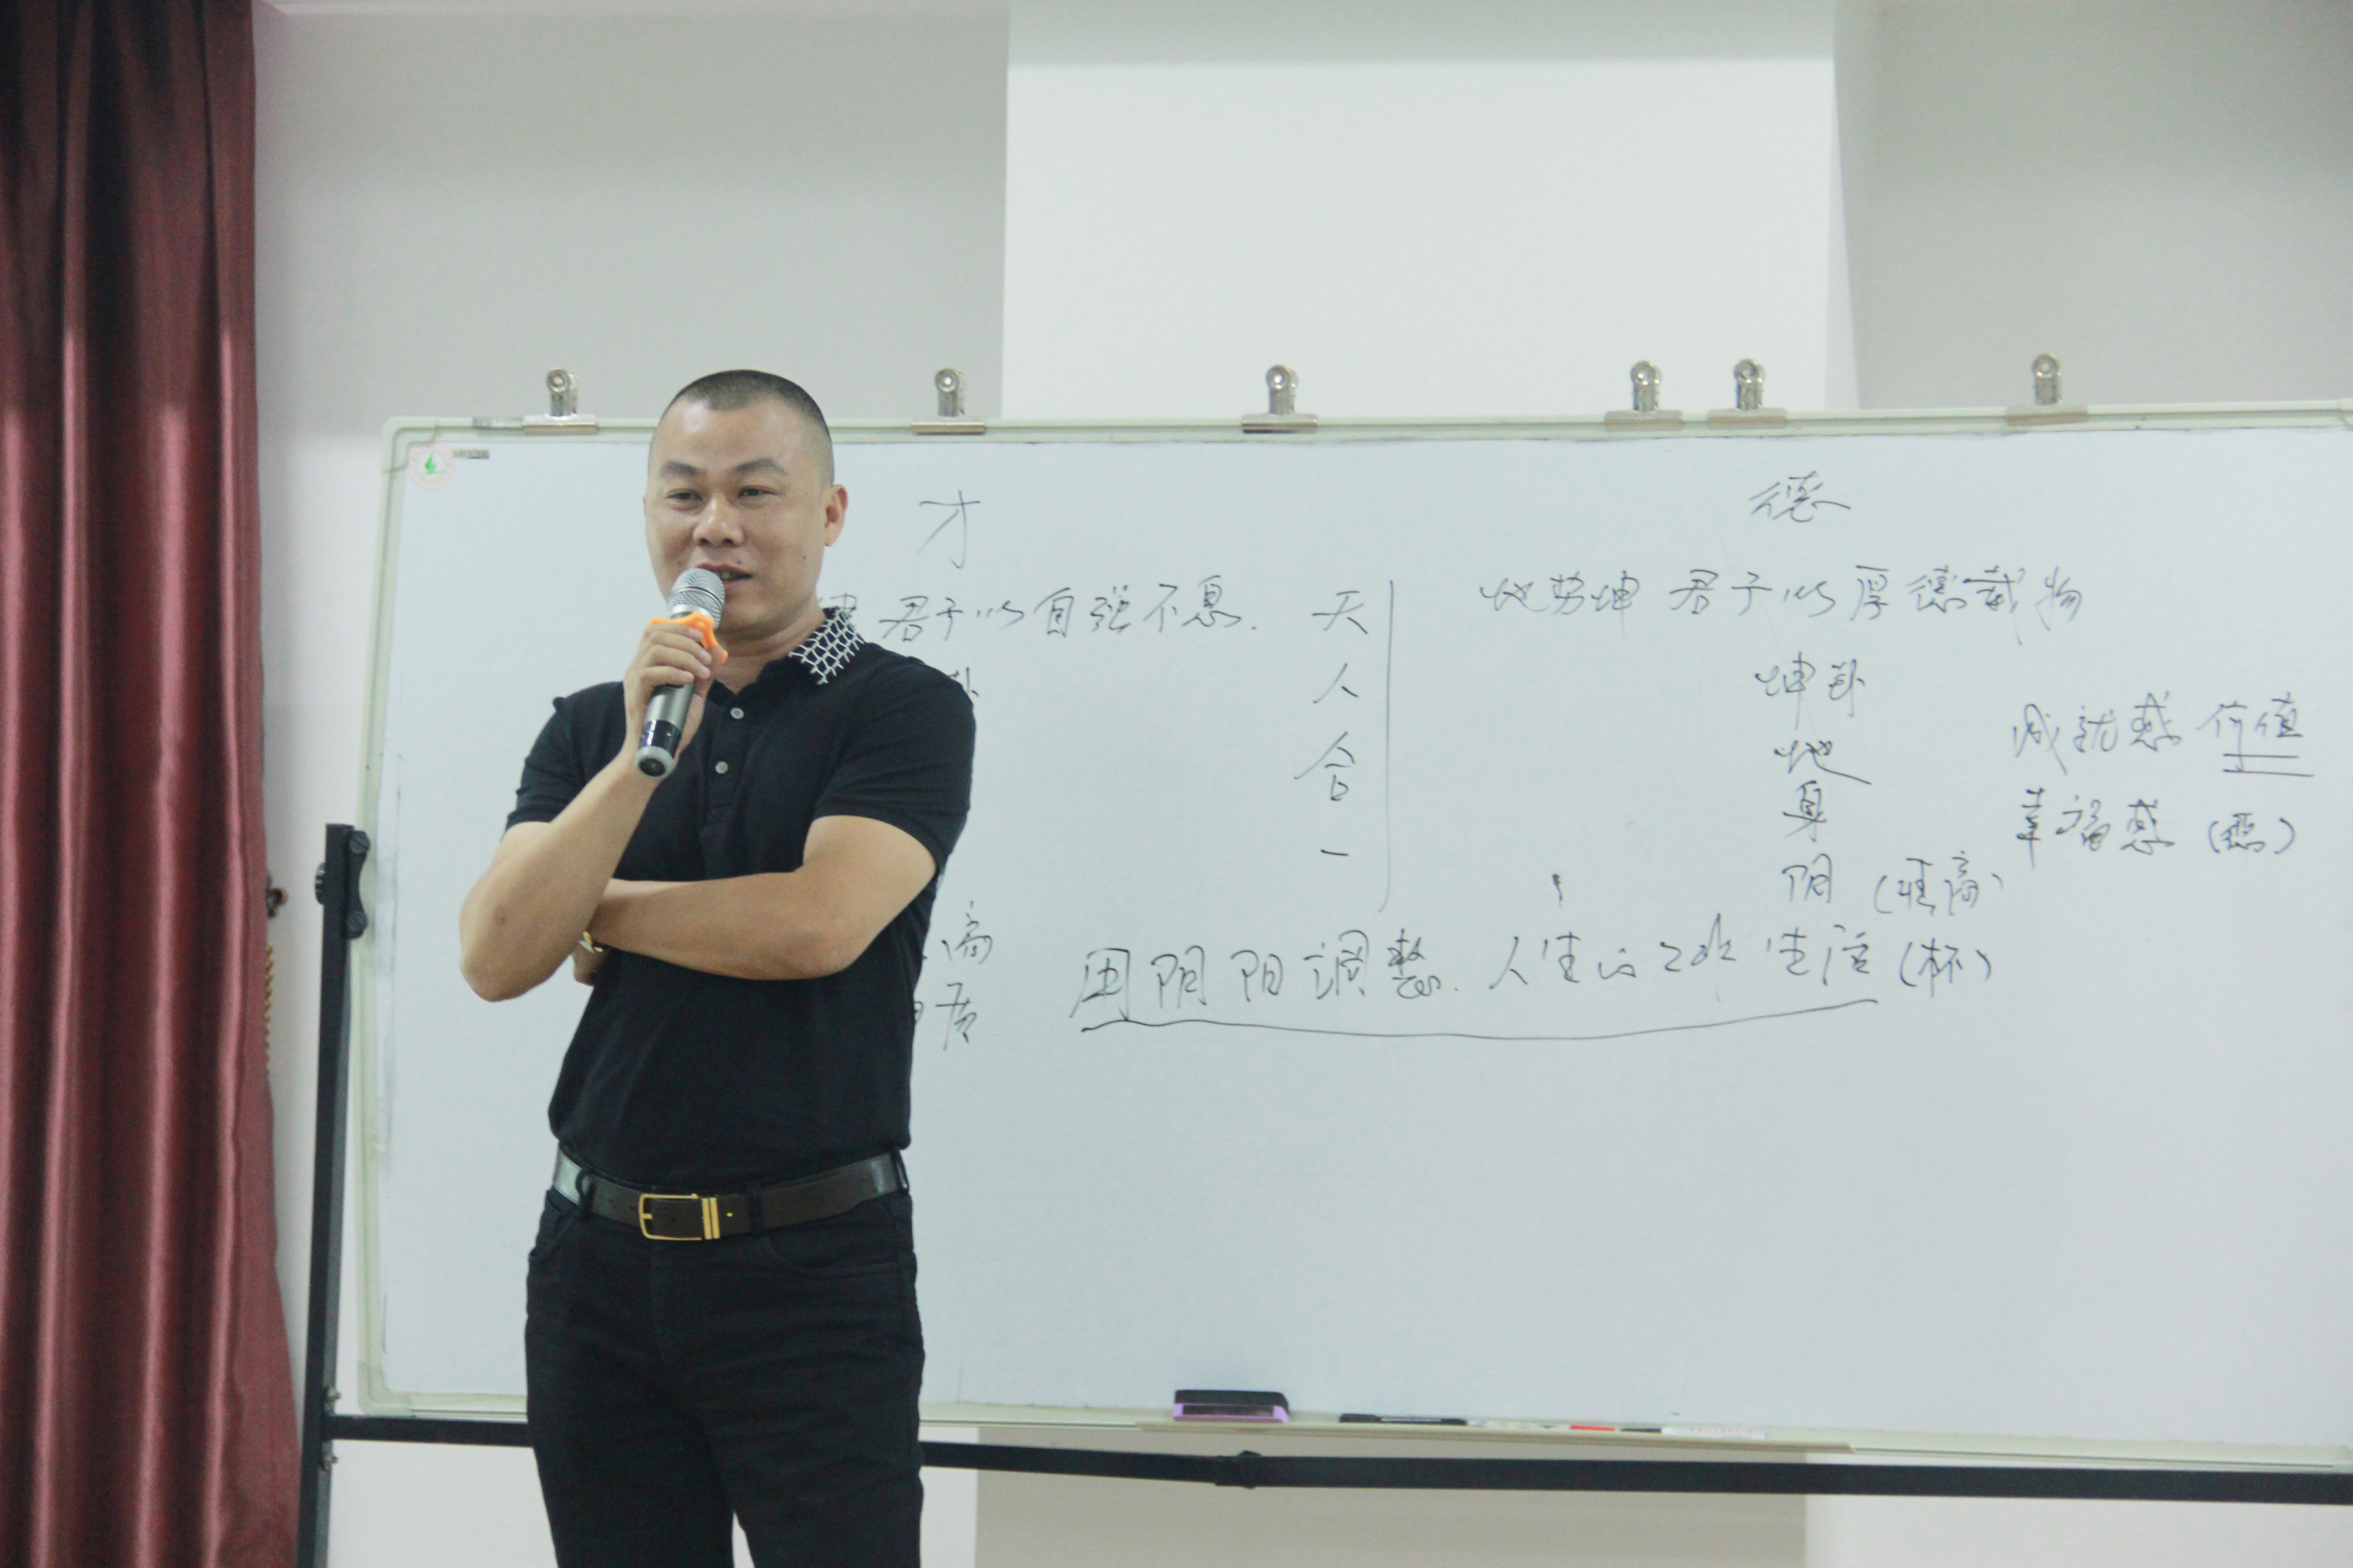 才
德
君子以自强不息.
天人合一
地势坤 君子以厚德载物
卦
坤卦
地
身
阴 (情商)
成就感 价值
幸福感 (德)
商
用阴阳调整.人生的 生活 (杯)